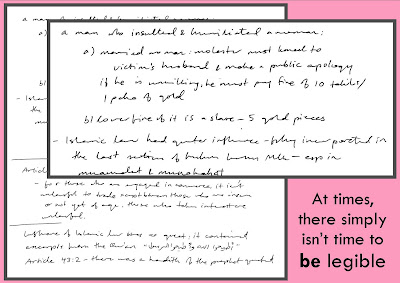 a man who insulted & humiliated a woman:
a) married woman: molester must kneel to
victim's husband & make a public apology
if he is unwilling, he must pay fine of 10 tahils/
1 paha of gold
b) lower fine if it is a slave - 5 gold pieces
- Islamic law had greater influence - fully incorporated in
the last sections of Hukum Kanun Mlk - esp in
muamalat & munakahat
b)
- Islam
the
mu
Article
- for those who are engaged in commerce, it isn't
unlawful to trade except between those who are insane
or not yet of age; those who take interest are
unlawful.
Influence of Islamic law was so great, it contained
excerpts from the Quran -
Article 43:2 - there was a hadith of the prophet quoted
At times,
there simply
isn't time to
be legible